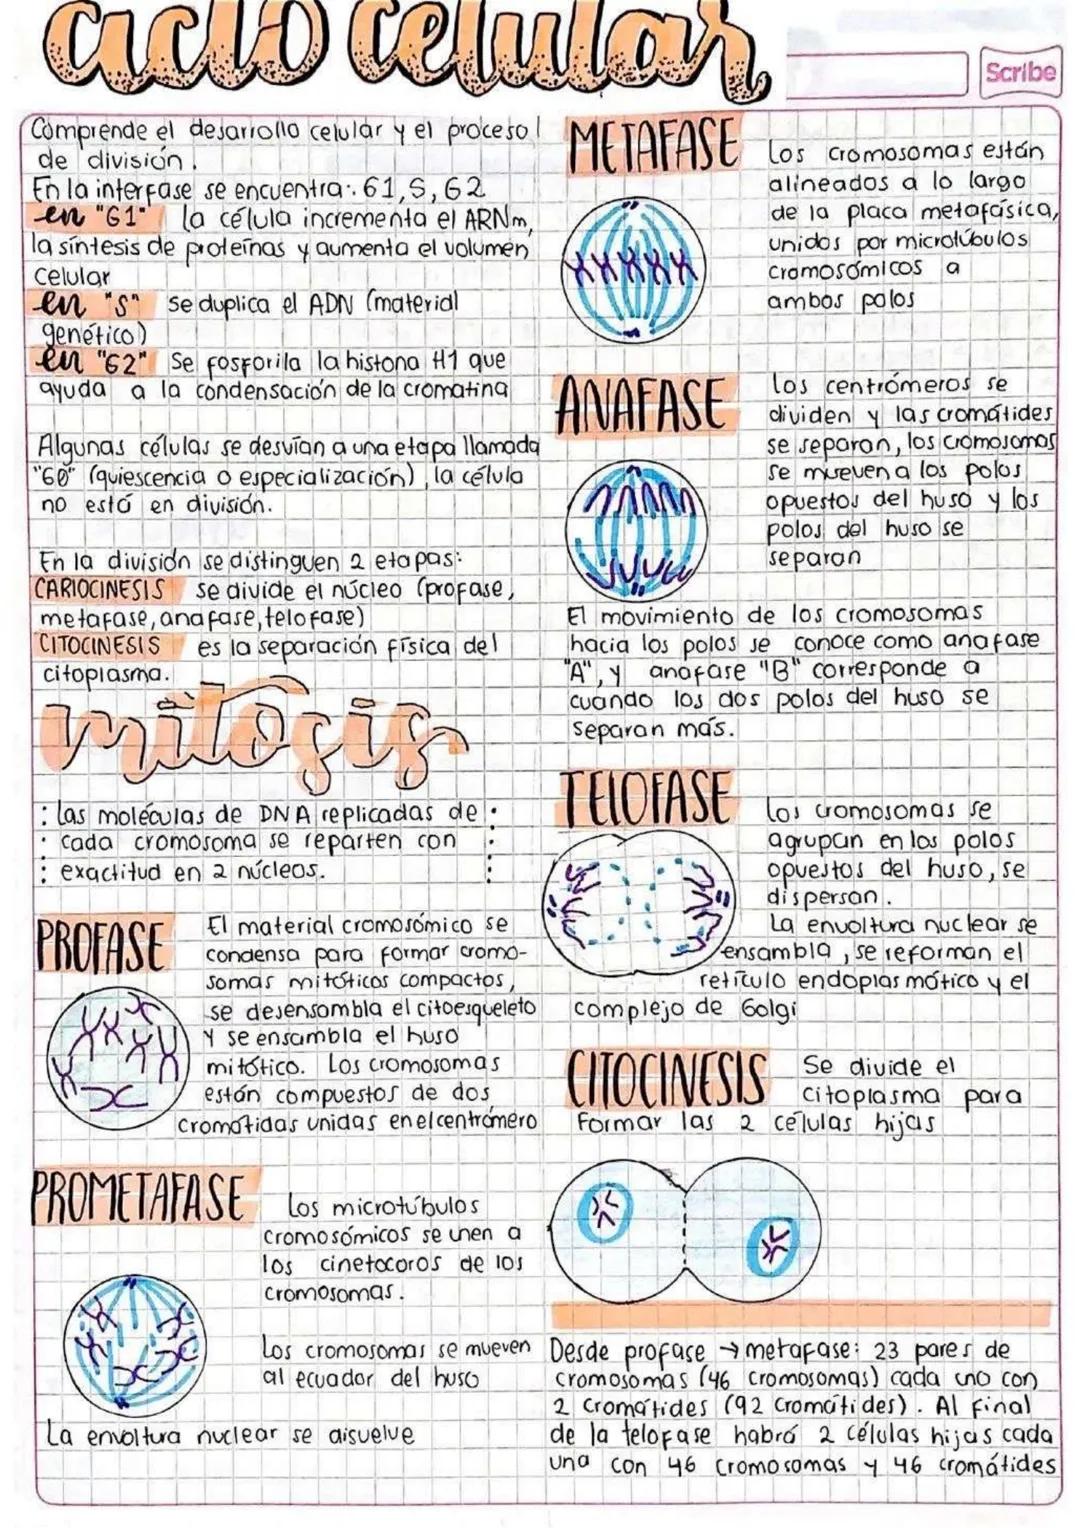 ciclo celular
Scribe
Comprende el desarrollo celular y el proceso
de división.
En la interfase se encuentra: G1, S, G2
en "G1" la célula incrementa el ARNm,
la síntesis de proteínas y aumenta el volumen
celular
en "S" se duplica el ADN (material
genético)
en "G2" Se fosforila la histona H1 que
ayuda a la condensación de la cromatina
Algunas células se desvían a una etapa llamada
"G0" (quiescencia o especialización), la célula
no está en división.
En la división se distinguen 2 etapas:
CARIOCINESIS se divide el núcleo (profase,
metafase, anafase, telofase)
CITOCINESIS es la separación física del
citoplasma.
mitosis
: las moléculas de DNA replicadas de :
: cada cromosoma se reparten con :
: exactitud en 2 núcleos. :
PROFASE
El material cromosómico se
condensa para formar cromo-
somas mitóticos compactos,
se desensambla el citoesqueleto
y se ensambla el huso
mitótico. Los cromosomas
están compuestos de dos
cromátidas unidas en el centrómero
PROMETAFASE
Los microtúbulos
cromosómicos se unen a
los cinetocoros de los
cromosomas.
Los cromosomas se mueven
al ecuador del huso
La envoltura nuclear se disuelve
METAFASE
Los cromosomas están
alineados a lo largo
de la placa metafásica,
unidos por microtúbulos
cromosómicos a
ambos polos
ANAFASE
Los centrómeros se
dividen y las cromátides
se separan, los cromosomas
se mueven a los polos
opuestos del huso y los
polos del huso se
separan
El movimiento de los cromosomas
hacia los polos se conoce como anafase
"A", y anafase "B" corresponde a
cuando los dos polos del huso se
separan más.
TELOFASE
Los cromosomas se
agrupan en los polos
opuestos del huso, se
dispersan.
La envoltura nuclear se
ensambla, se reforman el
retículo endoplasmático y el
complejo de Golgi
CITOCINESIS
Se divide el
citoplasma para
Formar las 2 células hijas
Desde profase → metafase: 23 pares de
cromosomas (46 cromosomas) cada uno con
2 cromátides (92 cromátides). Al final
de la telofase habrá 2 células hijas cada
una con 46 cromosomas y 46 cromátides